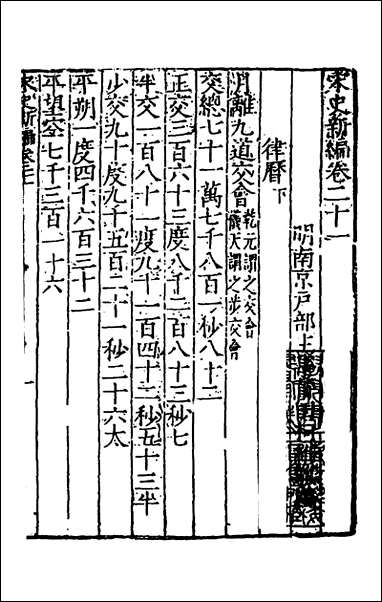 宋史新編卷二十一
明南京戶部主
律曆下
月離九道交會 乾元謂之交會 儀天謂之步交會
交總七十一萬七千八百一秒八十二
正交三百六十三度八千二百八十三秒七
半交一百八十一度九千一百四十二秒五十三半
少交九十度九千五百二十一秒二十六太
平朔一度四千六百三十二
平望空七千三百一十六
宋史新編卷二十一
一